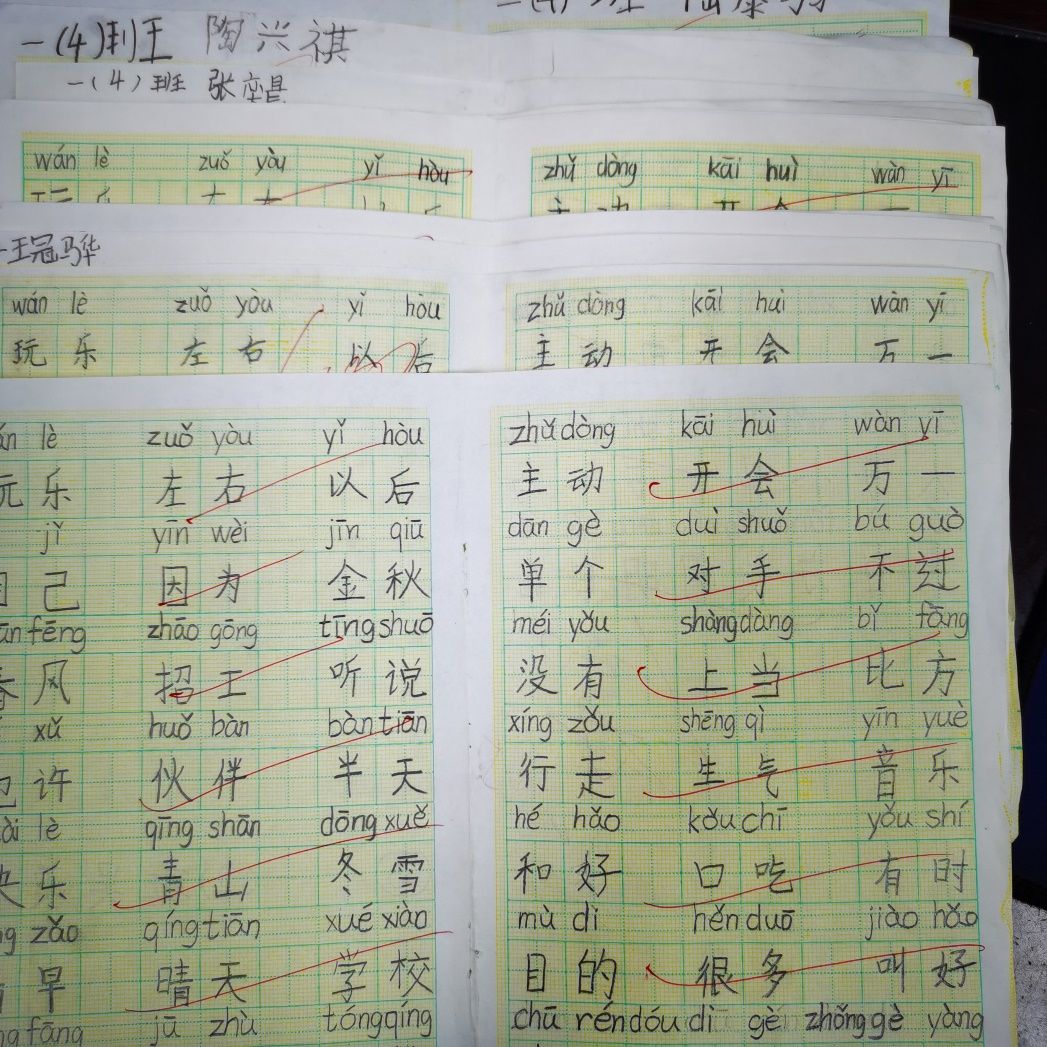 一(4)班王 陶兴祺
一(4)班 张
wán lè zuǒ yòu yǐ hòu
zhǔ dòng kāi huì wàn yī
王冠骅
wán lè zuǒ yòu yǐ hòu
玩乐 左右 以后
zhǔ dòng kāi huì wàn yī
主动 开会 万一
lè zuǒ yòu yǐ hòu
玩乐 左右 以后
jǐ yīn wèi jīn qiū
自己 因为 金秋
fēng zhāo gōng tīng shuō
春风 招工 听说
xǔ huǒ bàn bàn tiān
也许 伙伴 半天
lè qīng shān dōng xuě
快乐 青山 冬雪
zǎo qíng tiān xué xiào
早 晴天 学校
fāng jū zhù tóng qíng
zhǔ dòng kāi huì wàn yī
主动 开会 万一
dān gè duì shuǒ bú guò
单个 对手 不过
méi yǒu shàng dàng bǐ fāng
没有 上当 比方
xíng zǒu shēng qì yīn yuè
行走 生气 音乐
hé hǎo kǒu chī yǒu shí
和好 口吃 有时
mù dì hěn duō jiào hǎo
目的 很多 叫好
chū rén dóu dì gè zhǒng gè yàng